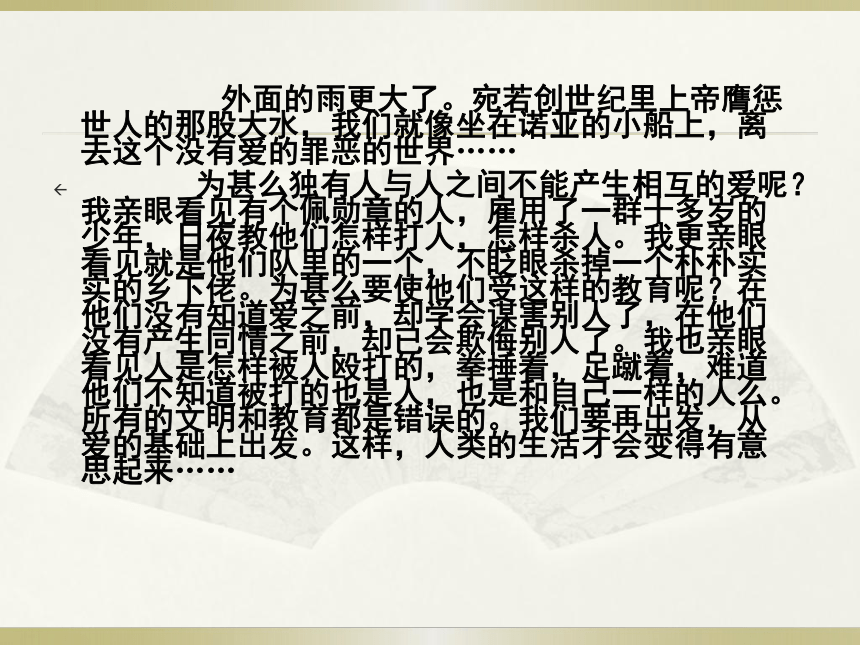 外面的雨更大了。宛若创世纪里上帝膺惩
世人的那股大水，我们就像坐在诺亚的小船上，离
去这个没有爱的罪恶的世界……
为甚么独有人与人之间不能产生相互的爱呢？
我亲眼看见有个佩勋章的人，雇用了一群十多岁的
少年，日夜教他们怎样打人，怎样杀人。我更亲眼
看见就是他们队里的一个，不眨眼杀掉一个朴朴实
实的乡下佬。为甚么要使他们受这样的教育呢？在
他们没有知道爱之前，却学会谋害别人了，在他们
没有产生同情之前，却已会欺侮别人了。我也亲眼
看见人是怎样被人殴打的，拳捶着，足蹴着，难道
他们不知道被打的也是人，也是和自己一样的人么。
所有的文明和教育都是错误的。我们要再出发，从
爱的基础上出发。这样，人类的生活才会变得有意
思起来……